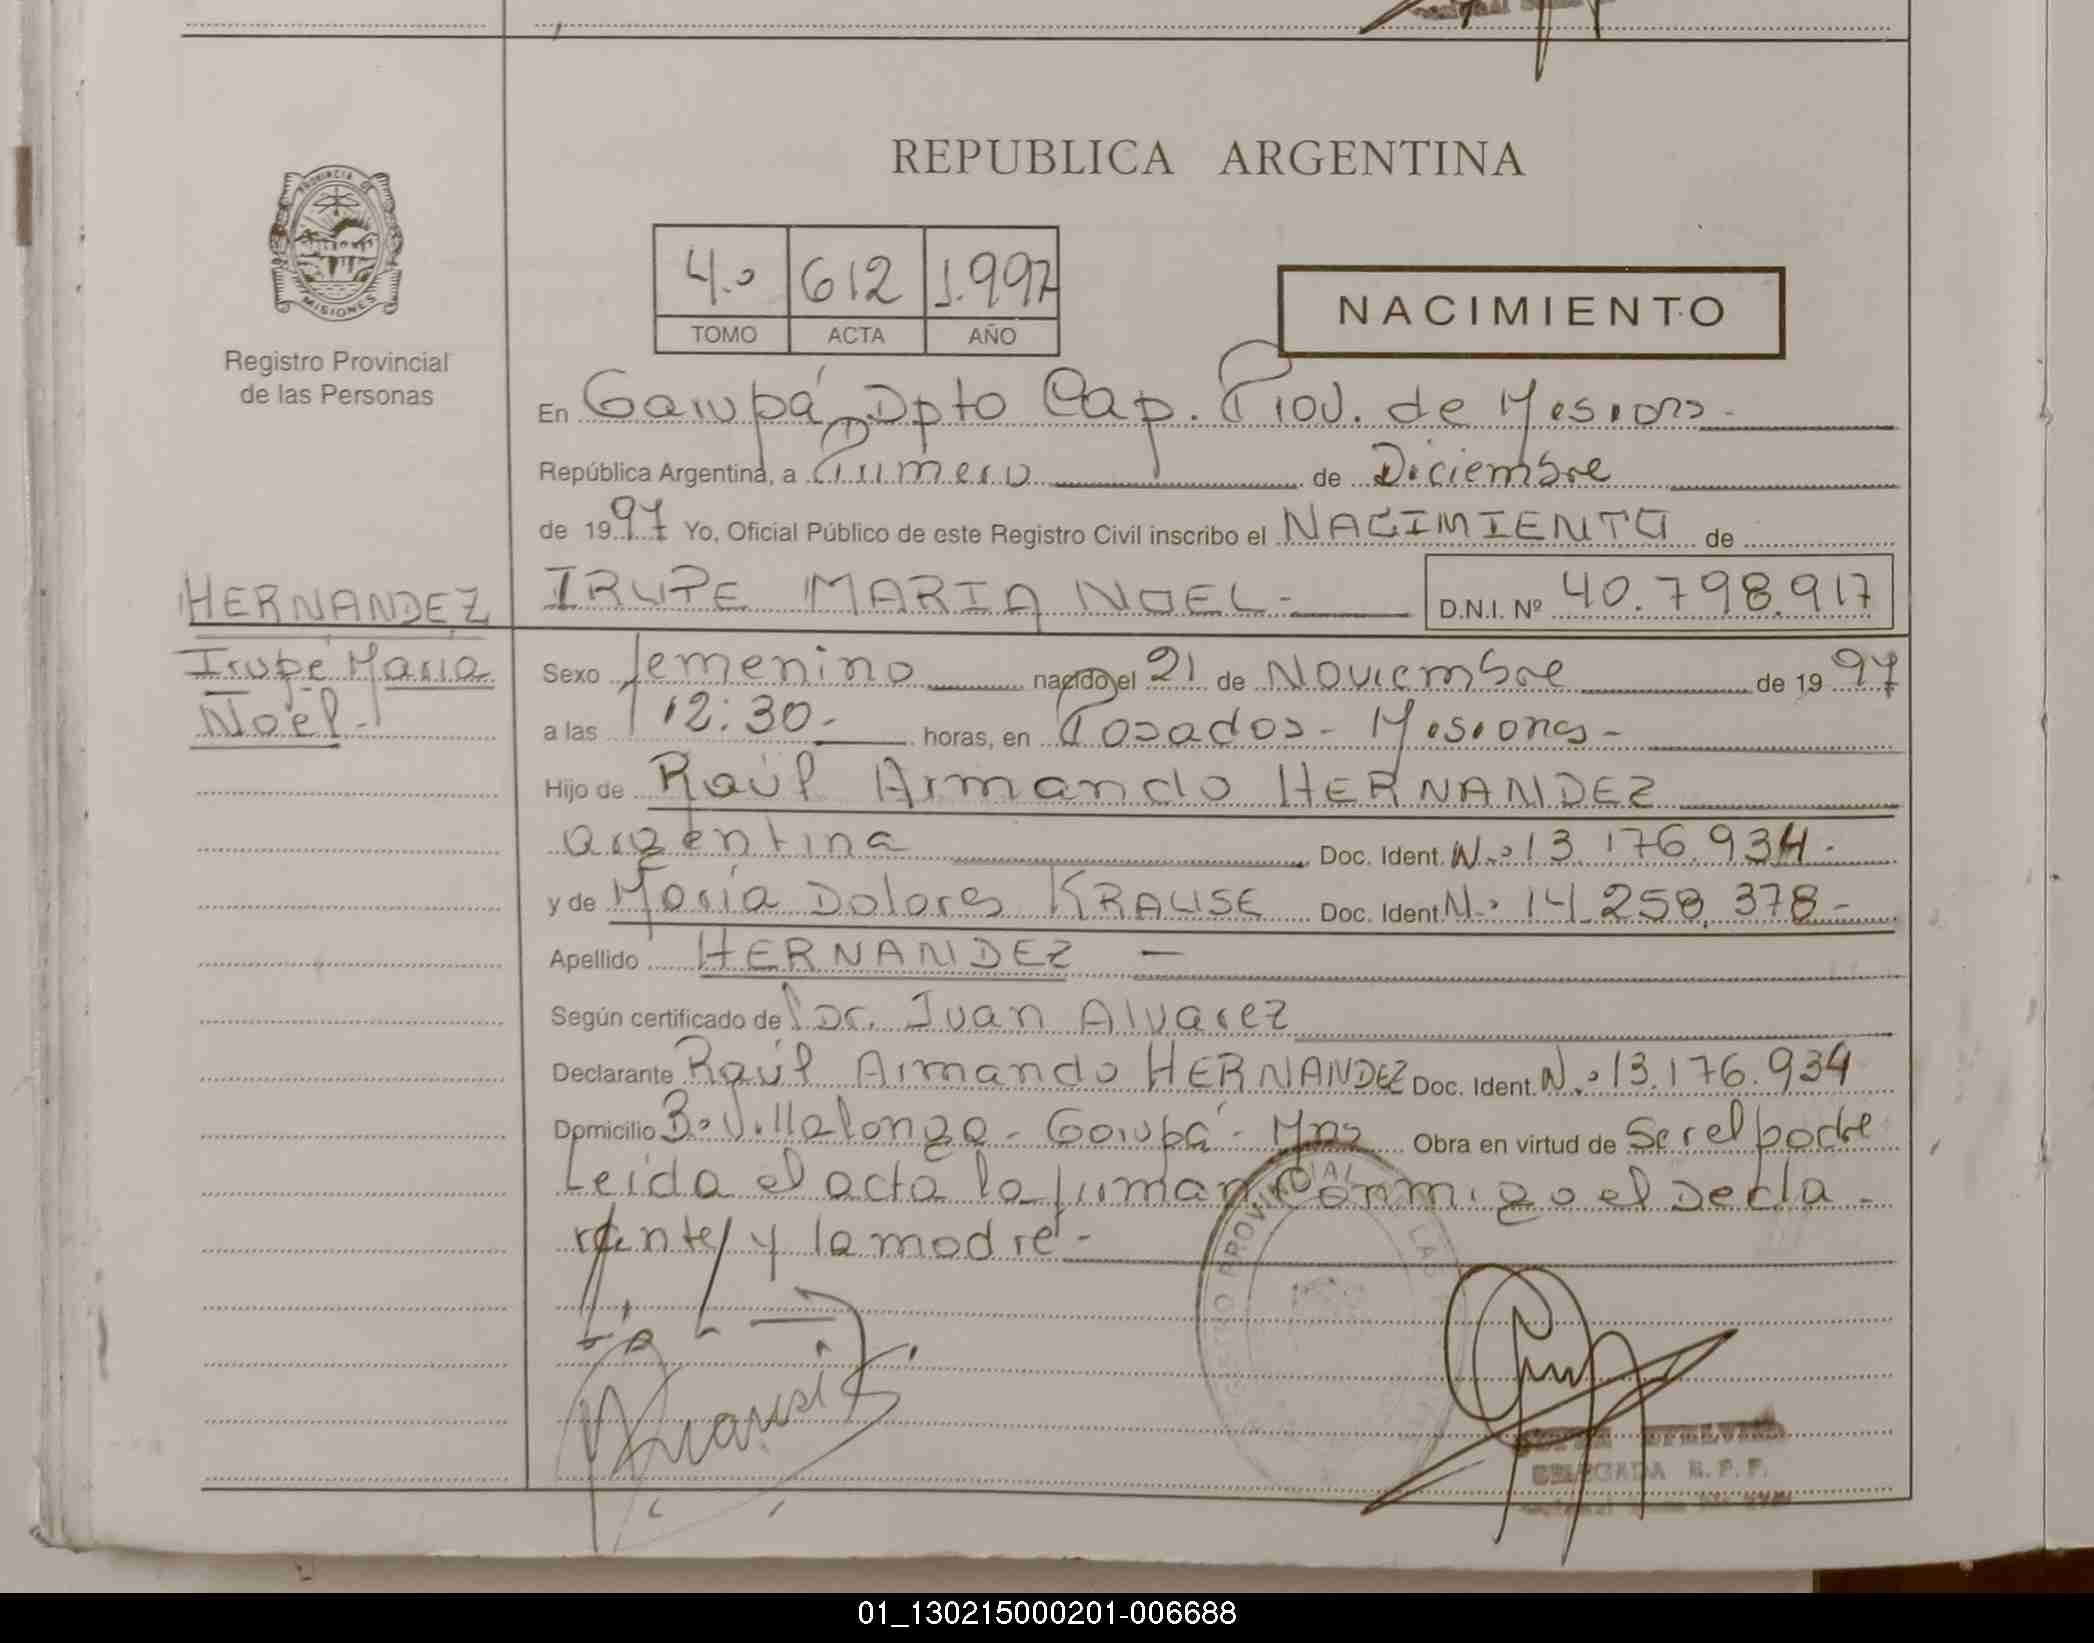 REPUBLICA ARGENTINA
PROVINCIA DE
MISIONES
Registro Provincial
de las Personas
4.º 612 1.997
TOMO ACTA AÑO
NACIMIENTO
En Garupá Dpto Cap. Prov. de Misiones.
República Argentina, a Primero de Diciembre
de 1997 Yo, Oficial Público de este Registro Civil inscribo el NACIMIENTO de
HERNANDEZ
IRUPE MARIA NOEL.- D.N.I. Nº 40.798.917
Irupé María
Noel.-
Sexo femenino nacido el 21 de Noviembre de 1997
a las 12:30.- horas, en Posadas - Misiones -
Hijo de Raúl Armando HERNANDEZ
argentina Doc. Ident. N.º 13.176.934.
y de María Dolores KRAUSE Doc. Ident N.º 14.258.378-
Apellido HERNANDEZ —
Según certificado de Dr. Juan Alvarez
Declarante Raúl Armando HERNANDEZ Doc. Ident. N.º 13.176.934
Domicilio Bº Villalonga - Garupá - Mnes Obra en virtud de Ser el padre
Leida el acta la firman conmigo el Decla -
rante y la madre -
REGISTRO PROVINCIAL DE LAS
DELEGADA R.P.P.
01_130215000201-006688